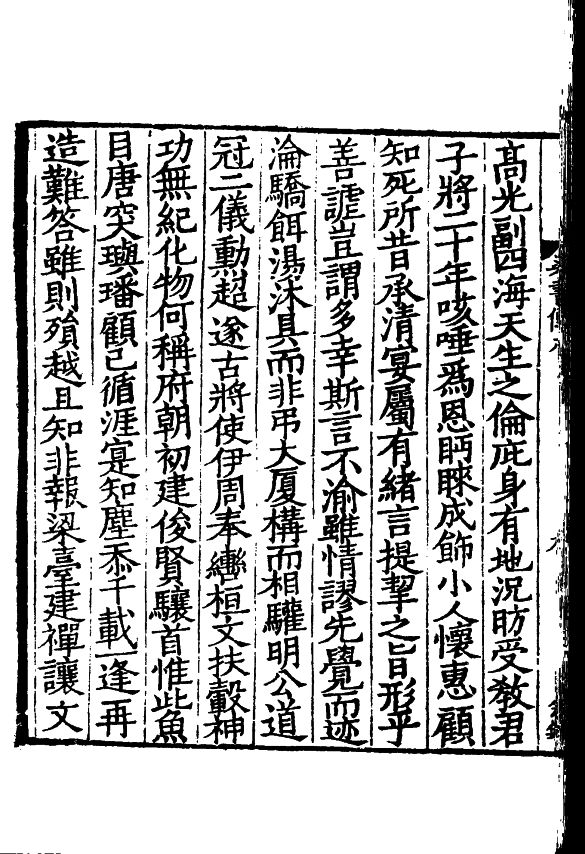 髙光副四海天生之倫庇身有地況昉受教君
子將二十年咳唾爲恩眄睞成飾小人懷惠顧
知死所昔承清宴屬有緒言提挈之旨形乎
善謔豈謂多幸斯言不渝雖情謬先覺而迹
淪驕餌湯沐具而非弔大厦構而相驩明公道
冠二儀勳超遂古將使伊周奉轡桓文扶轂神
功無紀化物何稱府朝初建俊賢驤首惟此魚
目唐突璵璠顧己循涯寔知塵忝千載一逢再
造難答雖則殞越且知非報梁臺建禪讓文